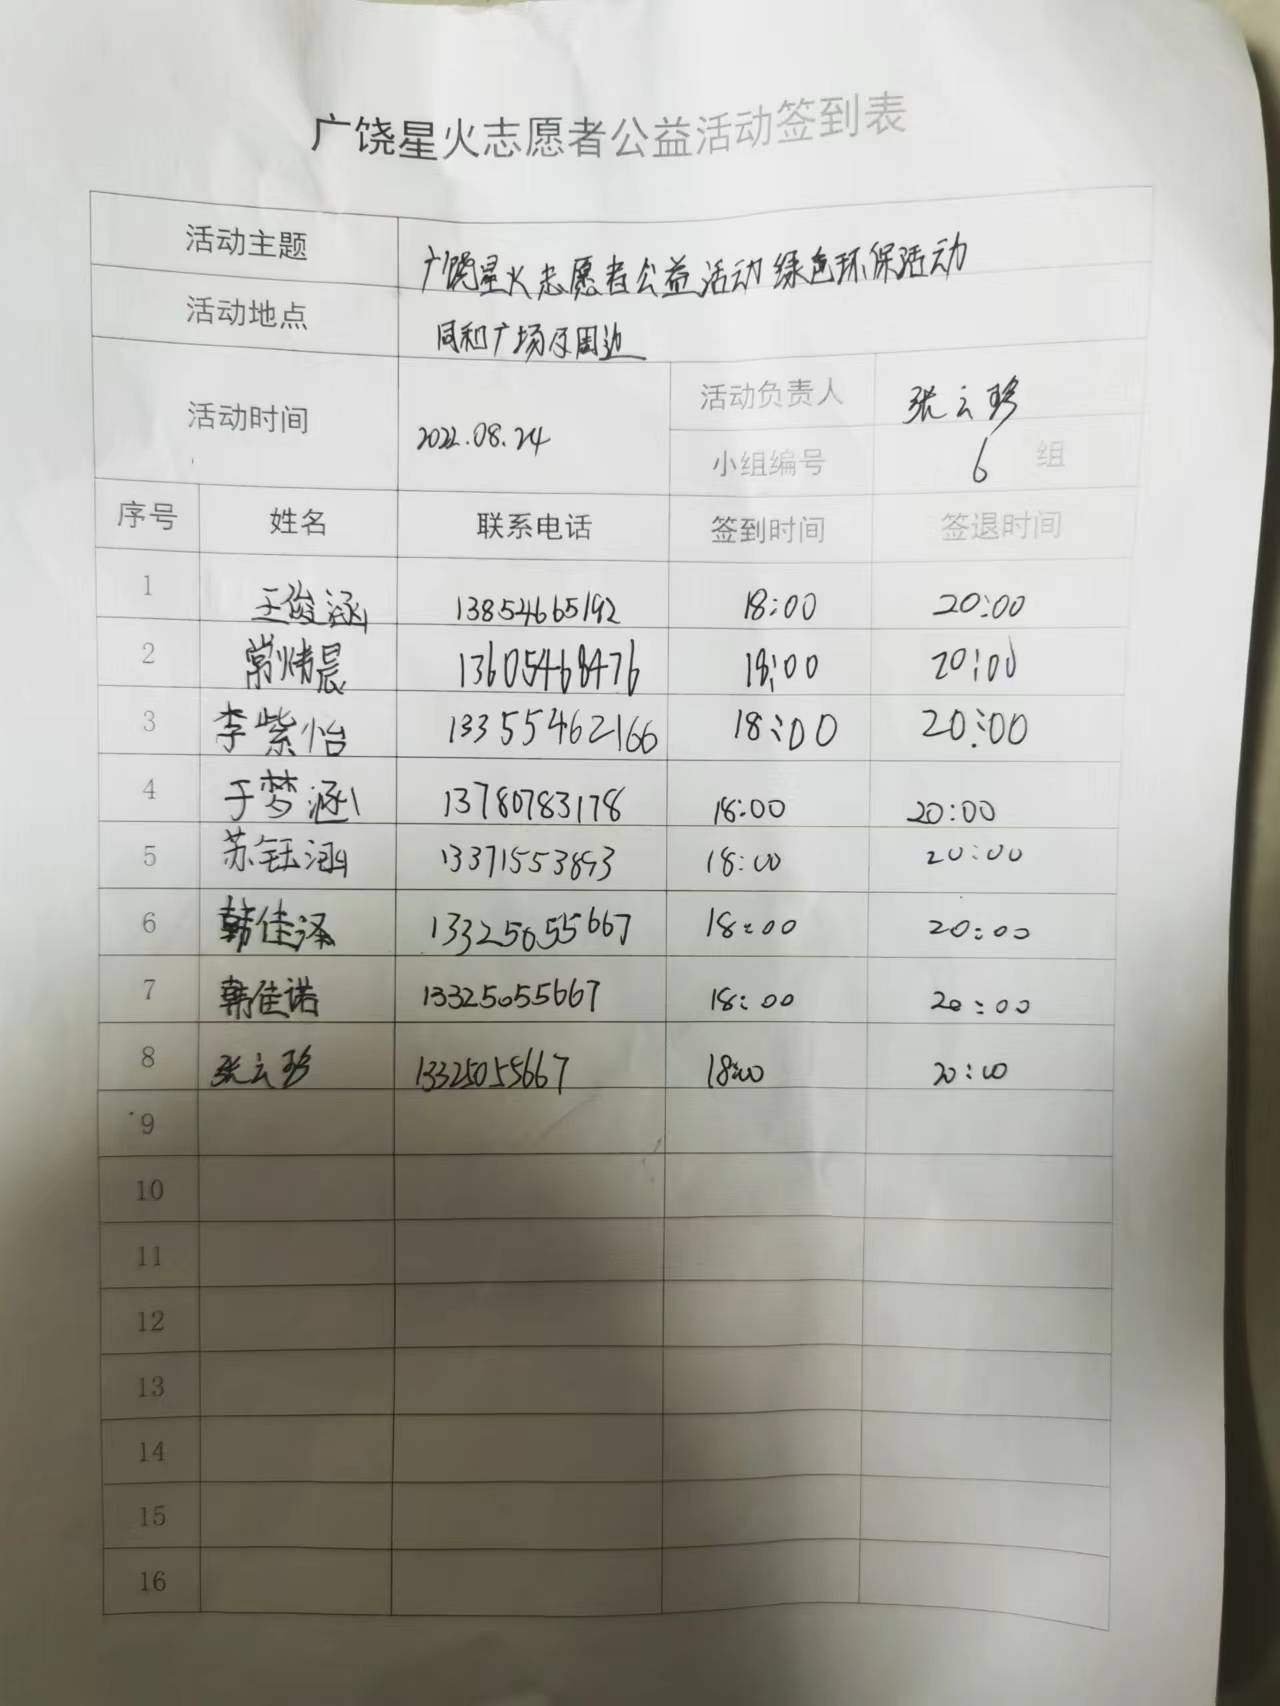 广饶星火志愿者公益活动签到表
活动主题 广饶星火志愿者公益活动绿色环保活动
活动地点 同和广场及周边
活动时间 2022.08.24 活动负责人 张云珍
小组编号 6 组
序号 姓名 联系电话 签到时间 签退时间
1 王俊涵 13854665192 18:00 20:00
2 常炜晨 13605468476 18:00 20:00
3 李紫怡 13355462166 18:00 20:00
4 于梦涵 13780783178 18:00 20:00
5 苏钰涵 13371553893 18:00 20:00
6 韩佳泽 13325055667 18:00 20:00
7 韩佳诺 13325055667 18:00 20:00
8 张云珍 13325055667 18:00 20:00
9
10
11
12
13
14
15
16